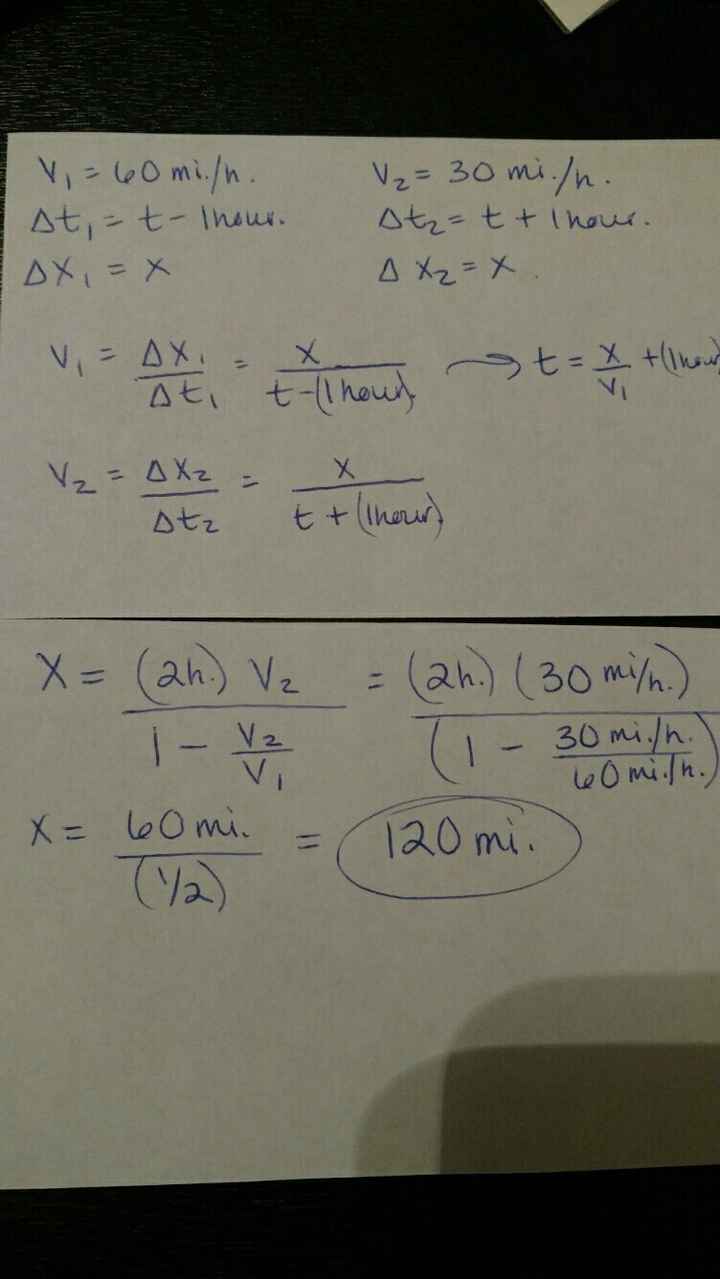 V₁ = 60 mi./h. V₂ = 30 mi./h.
Δt₁ = t - 1 hour. Δt₂ = t + 1 hour.
ΔX₁ = X ΔX₂ = X.
V₁ = ΔX₁/Δt₁ = X/(t-(1 hour)) → t = X/V₁ + (1 hour)
V₂ = ΔX₂/Δt₂ = X/(t + (1 hour))
X = (2h.) V₂/(1 - V₂/V₁) = (2h.) (30 mi/h.)/(1 - 30 mi./h./60 mi./h.)
X = 60 mi./(1/2) = 120 mi.